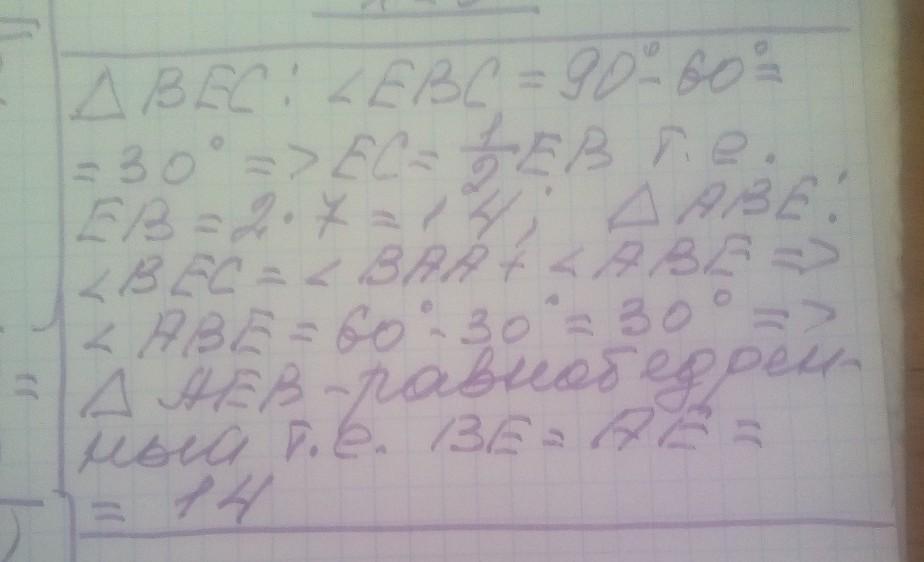 △ BEC: <EBC = 90° - 60° =
= 30° => EC = 1/2 EB т.е.
EB = 2·7 = 14; △ ABE:
<BEC = <BAA + <ABE =>
<ABE = 60° - 30° = 30° =>
△ AEB - равнобедрен-
ный т.е. BE = AE =
= 14